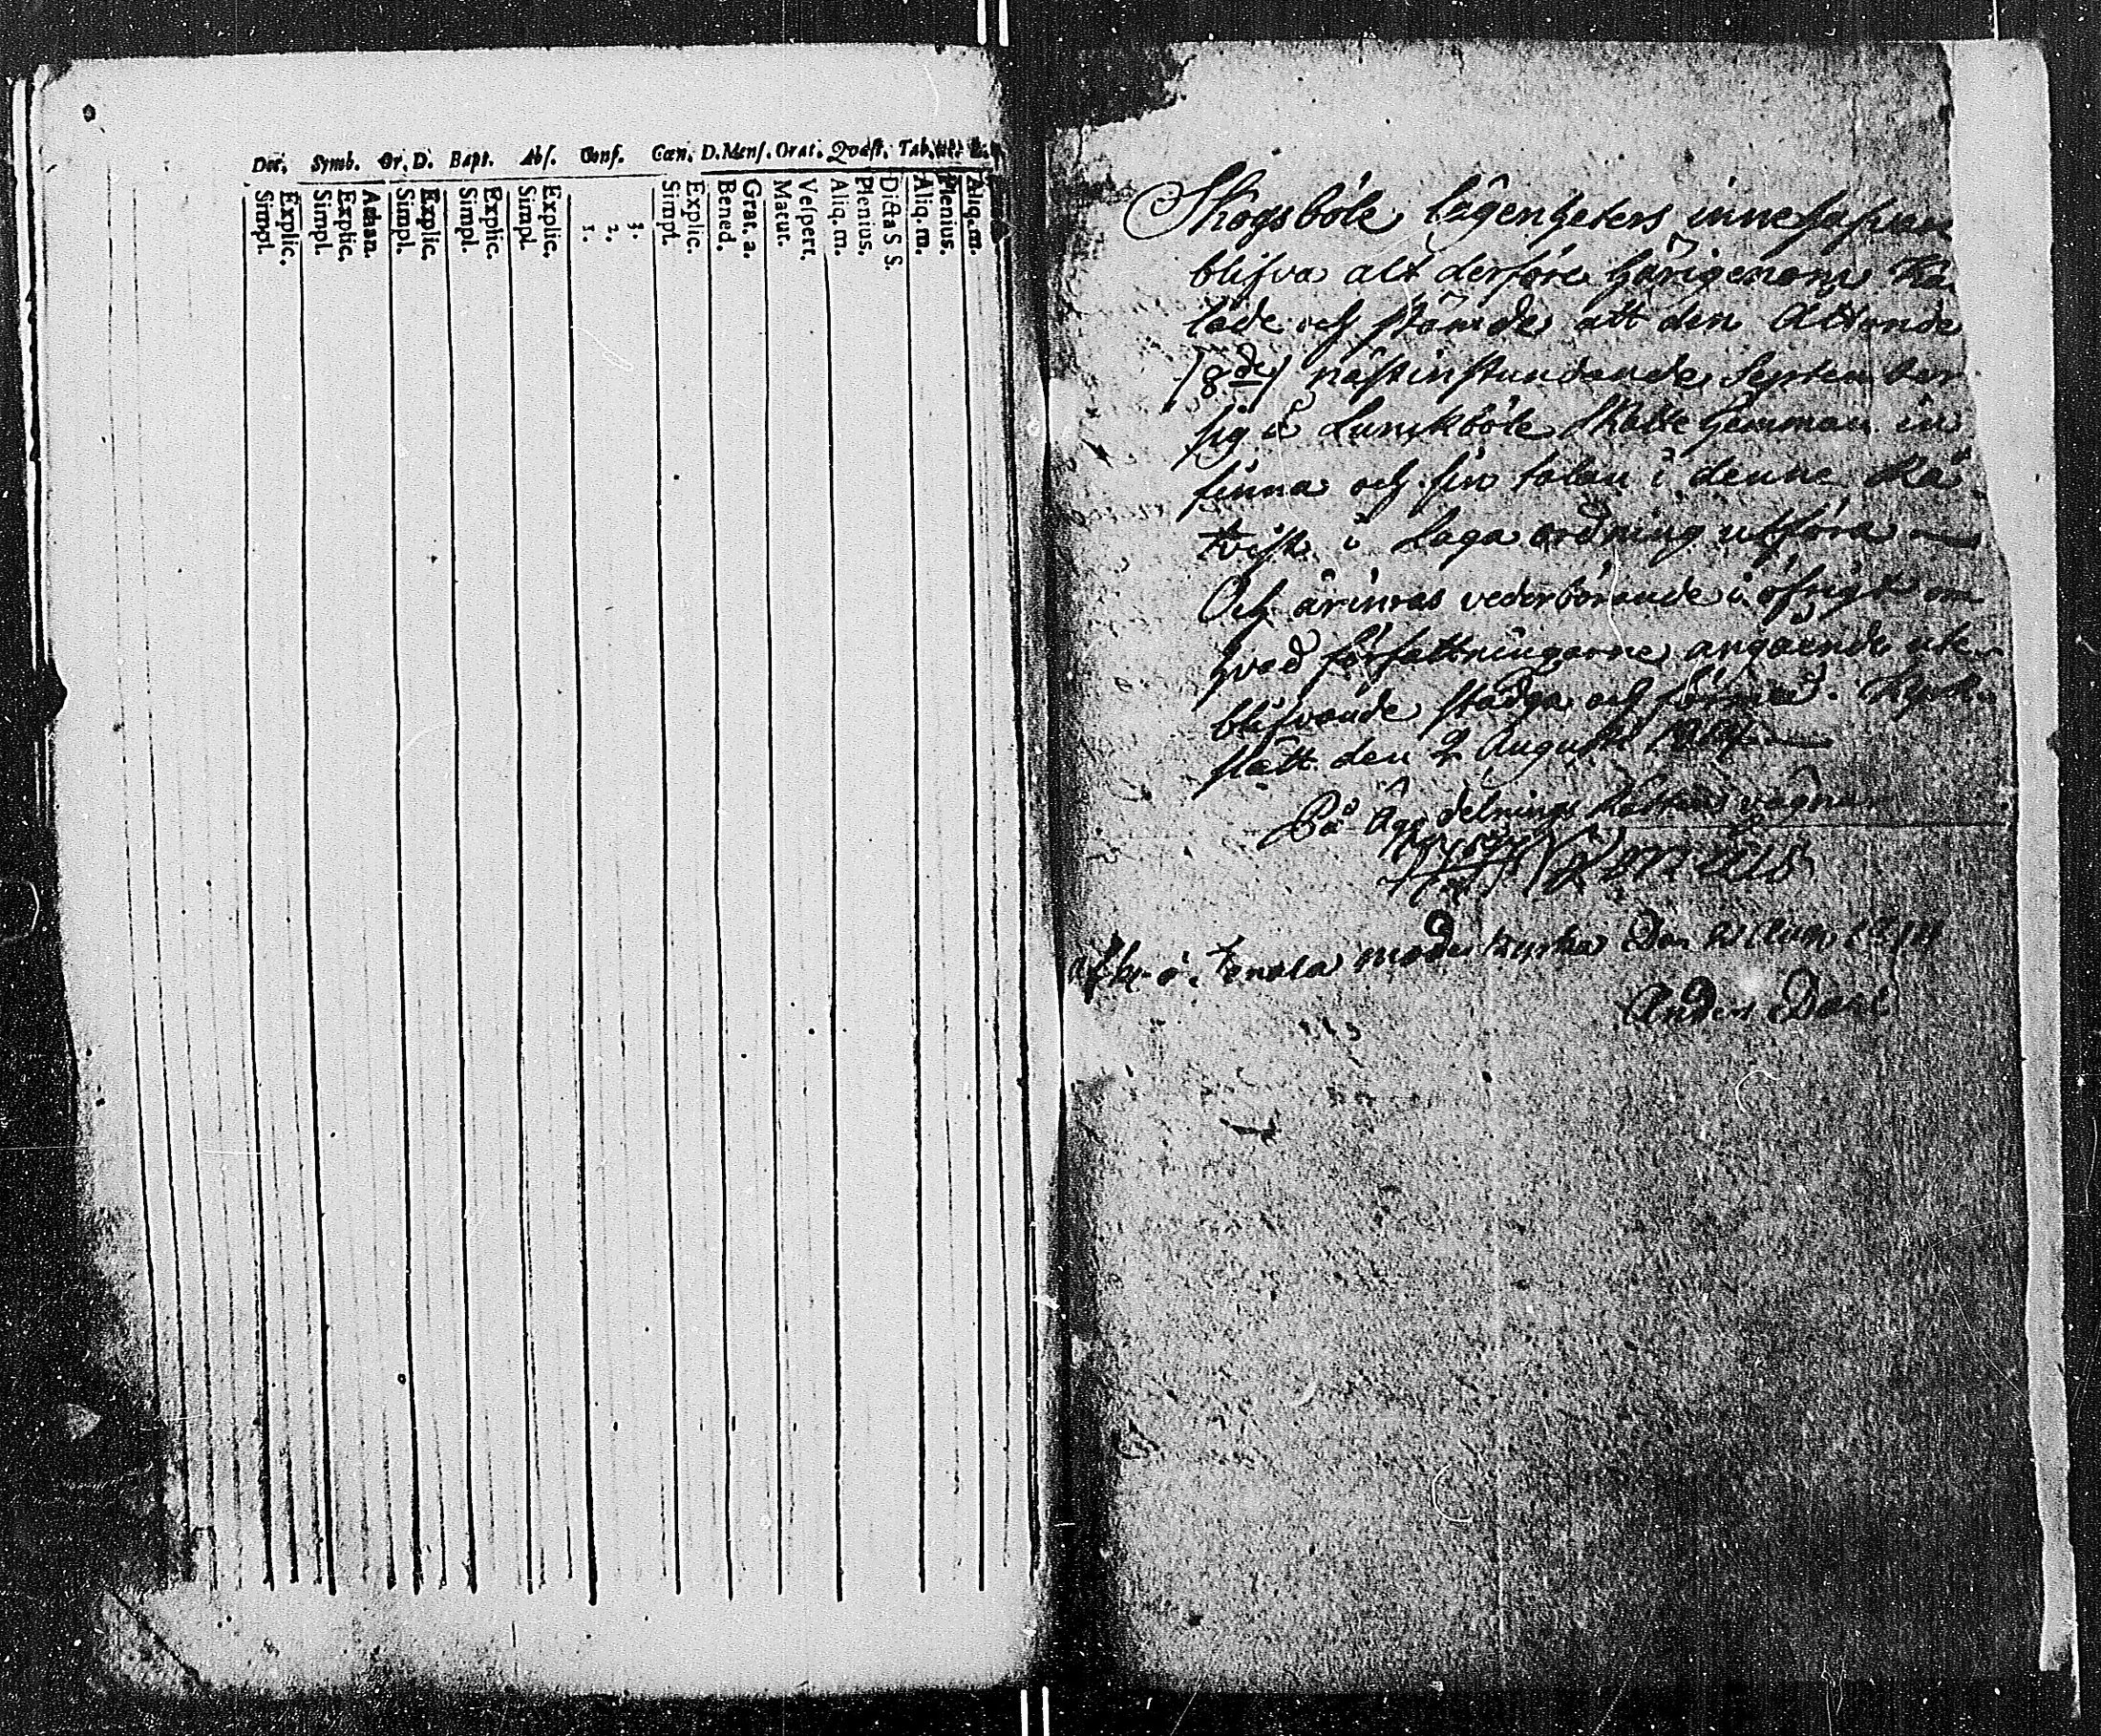 Dec. Symb. Or. D. Bapt. Abs. Conf. Cœn. D. Mens. Orat. Qvæst. Tab.
Simpl.
Explic.
Simpl.
Explic.
Athan.
Simpl.
Explic.
Simpl.
Explic.
Simpl.
Explic.
1.
2.
3.
Simpl.
Explic.
Bened.
Grat. a.
Matut.
Vespert.
Aliq. m.
Plenius.
Dicta S S.
Aliq. m.
Plenius.
Aliq. m.
Skogsböle lägenheters innehafvare
blifva alt derföre härigenom Kal
lade och stämde att den Åttonde
/8de/ nästinstundande September
sig å Lunckböle Skatte hemman in
finna och sin talan i denne Rä
tvist i Laga ordning utföra
Och ärinras vederbörande i öfrigt om
hvad författningarne angående ute
blifvande stadga och förmå. Kyrk
slätt den 2 Augusti
På Ägo delnings Rättens vägnar
i Tenala moder kyrka Den
Anders